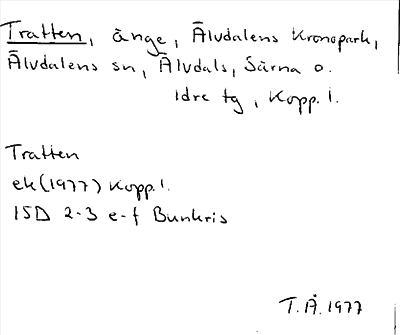 Tratten, änge, Älvdalens Kronopark,
Älvdalens sn, Älvdals, Särna o.
Idre tg, Kopp. l.
Tratten
ek (1977) Kopp. l.
15D 2-3 e-f Bunkris
T.Å. 1977